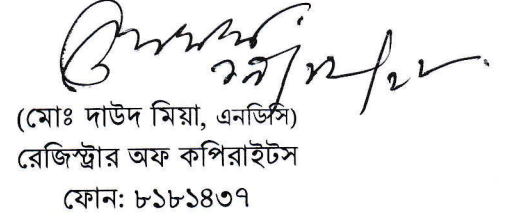 (মোঃ দাউদ মিয়া, এনডিসি)
রেজিস্ট্রার অফ কপিরাইটস
ফোন: ৮১৮১৪৩৭